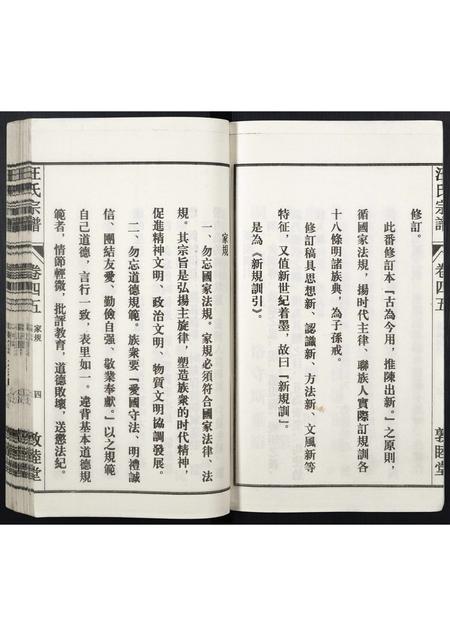 汪氏宗譜
卷四五
敦睦堂
修訂。
此番修訂本『古為今用，推陳出新。』之原則，
循國家法規，揚时代主律、聯族人實際訂規訓各
十八條明諸族典，為子孫戒。
修訂稿具思想新、認識新、方法新、文風新等
特征，又值新世纪着墨，故曰『新規訓』。
是為《新規訓引》。
家規
一、勿忘國家法規。家規必須符合國家法律、法
規。其宗旨是弘揚主旋律，塑造族衆的时代精神，
促進精神文明、政治文明、物質文明協調發展。
二、勿忘道德規范。族衆要『愛國守法、明禮誠
信、團結友愛、勤儉自强、敬業奉獻。』以之規範
自己道德，言行一致，表里如一。違背基本道德規
範者，情節輕微，批評教育，道德敗壞，送懲法紀。
汪氏宗譜
卷四五
家規
四
敦睦堂